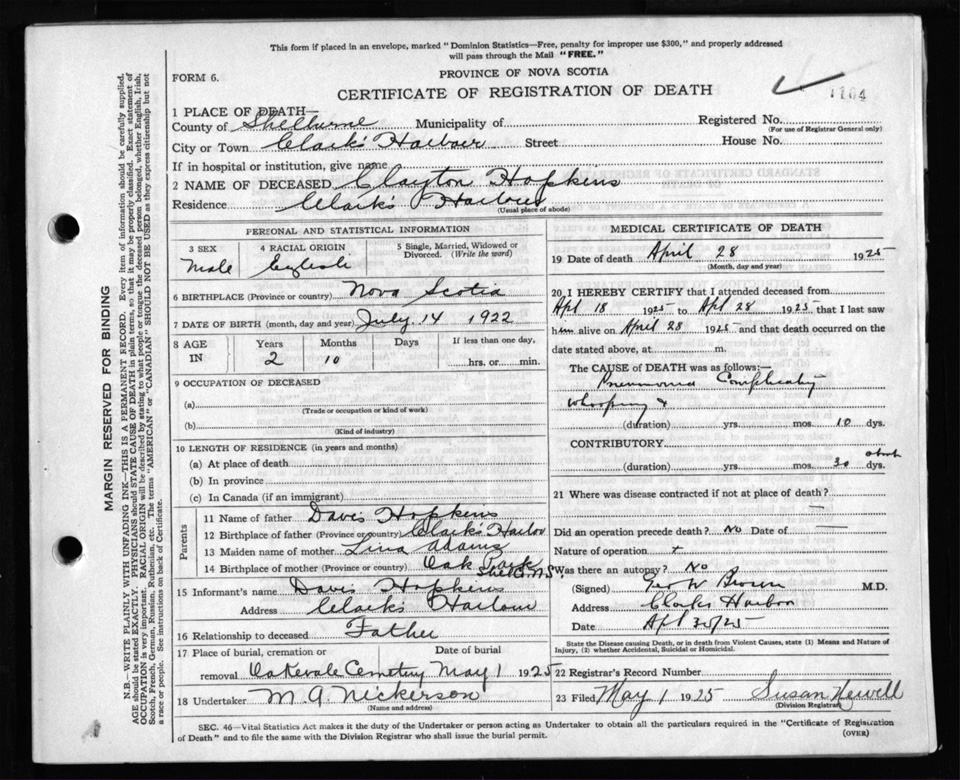 This form if placed in an envelope, marked "Dominion Statistics—Free, penalty for improper use $300," and properly addressed
will pass through the Mail "FREE."
FORM 6.
PROVINCE OF NOVA SCOTIA
CERTIFICATE OF REGISTRATION OF DEATH
1164
MARGIN RESERVED FOR BINDING
N.B.—WRITE PLAINLY WITH UNFADING INK—THIS IS A PERMANENT RECORD. Every item of information should be carefully supplied.
AGE should be stated EXACTLY. PHYSICIANS should STATE CAUSE OF DEATH in plain terms, so that it may be properly classified. Exact statement of
OCCUPATION is very important. RACIAL ORIGIN will be described by stating to what people or tongue the deceased person belonged, whether English, Irish,
Scotch, French, German, Russian, Ruthenian, etc. The terms "AMERICAN" or "CANADIAN" SHOULD NOT BE USED as they express citizenship but not
a race or people. See instructions on back of Certificate.
1 PLACE OF DEATH—
County of Shelburne Municipality of Registered No.
(For use of Registrar General only)
City or Town Clark's Harbour Street House No.
If in hospital or institution, give name
2 NAME OF DECEASED Clayton Hopkins
Residence Clark's Harbour
(Usual place of abode)
PERSONAL AND STATISTICAL INFORMATION
3 SEX
Male
4 RACIAL ORIGIN
English
5 Single, Married, Widowed or
Divorced. (Write the word)
6 BIRTHPLACE (Province or country) Nova Scotia
7 DATE OF BIRTH (month, day and year) July 14 1922
8 AGE
IN
Years
2
Months
10
Days
If less than one day,
hrs. or min.
9 OCCUPATION OF DECEASED
(a)
(Trade or occupation or kind of work)
(b)
(Kind of industry)
10 LENGTH OF RESIDENCE (in years and months)
(a) At place of death
(b) In province
(c) In Canada (if an immigrant)
Parents
11 Name of father Davis Hopkins
12 Birthplace of father (Province or country) Clark's Harbor
13 Maiden name of mother Lina Adams
14 Birthplace of mother (Province or country) Oak Park
Shel Co. N.S.
15 Informant's name Davis Hopkins
Address Clark's Harbour
16 Relationship to deceased Father
17 Place of burial, cremation or Date of burial
removal Oakvale Cemetery May 1 1925
18 Undertaker M. A. Nickerson
(Name and address)
MEDICAL CERTIFICATE OF DEATH
19 Date of death April 28 1925
(Month, day and year)
20 I HEREBY CERTIFY that I attended deceased from
Apl 18 1925 to Apl 28 1925, that I last saw
him alive on April 28 1925 and that death occurred on the
date stated above, at m.
The CAUSE of DEATH was as follows:—
Pneumonia Complicating
Whooping
(duration) yrs. mos. 10 dys.
CONTRIBUTORY
(duration) yrs. mos. 30 about dys.
21 Where was disease contracted if not at place of death?
Did an operation precede death? No Date of
Nature of operation
Was there an autopsy? No
(Signed) Brown M.D.
Address Clarks Harbor
Date Apl 30/25
State the Disease causing Death, or in death from Violent Causes, state (1) Means and Nature of
Injury, (2) whether Accidental, Suicidal or Homicidal.
22 Registrar's Record Number
23 Filed May 1 1925 Susan Newell
(Division Registrar)
SEC. 46—Vital Statistics Act makes it the duty of the Undertaker or person acting as Undertaker to obtain all the particulars required in the "Certificate of Registration
of Death" and to file the same with the Division Registrar who shall issue the burial permit.
(OVER)